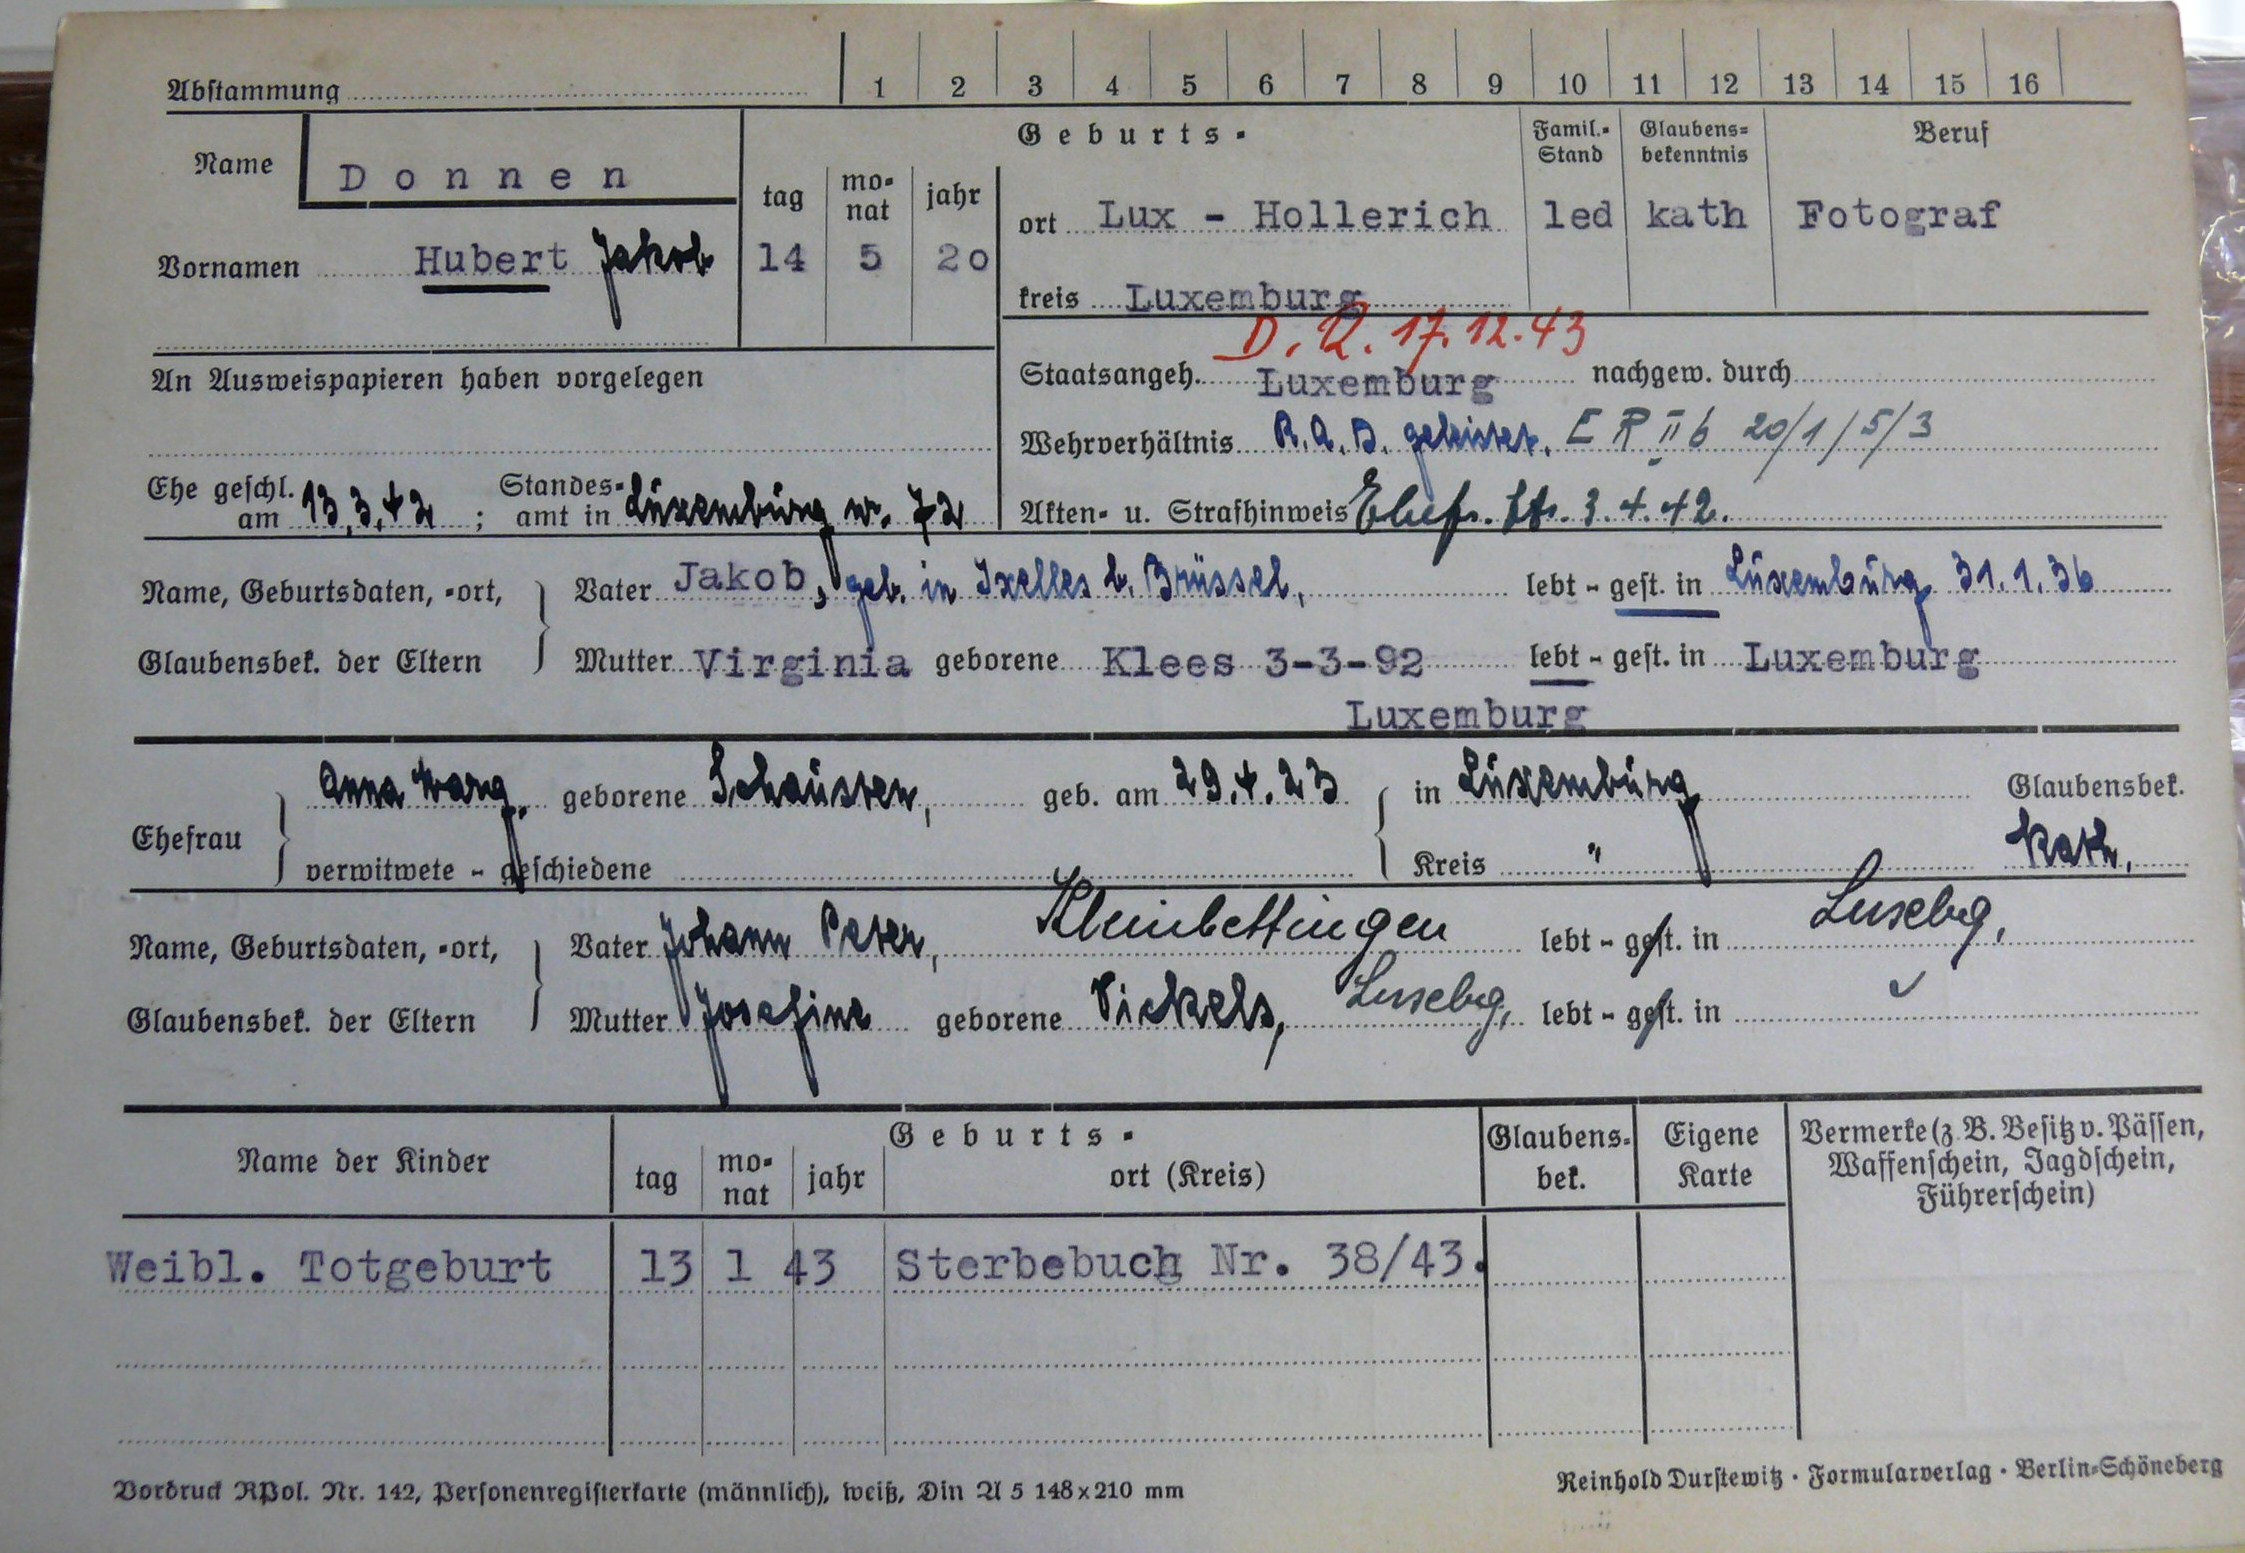 Abstammung 1 2 3 4 5 6 7 8 9 10 11 12 13 14 15 16
Name Donnen
Geburts-
Famil.-Stand Glaubens=bekenntnis Beruf
tag mo-nat jahr
ort Lux - Hollerich led kath Fotograf
Vornamen Hubert Jakob 14 5 20
kreis Luxemburg
D. R. 17.12.43
An Ausweispapieren haben vorgelegen
Staatsangeh. Luxemburg nachgew. durch
Wehrverhältnis R.A.D. geleistet. E R II b 20/1/5/3
Ehe geschl. am 13.3.42 ; Standes-amt in Luxemburg nr. 72
Akten- u. Strafhinweis Ehefr. 3.4.42.
Name, Geburtsdaten, -ort, Vater Jakob, geb. in Ixelles b. Brüssel, lebt - gest. in Luxemburg 31.1.36
Glaubensbek. der Eltern Mutter Virginia geborene Klees 3-3-92 lebt - gest. in Luxemburg
Luxemburg
Anna Marg. geborene Schauster, geb. am 29.4.23 in Luxemburg Glaubensbek.
Ehefrau
verwitwete - geschiedene Kreis " Kath.
Name, Geburtsdaten, -ort, Vater Johann Peter, Kleinbettingen lebt - gest. in Luxebg,
Glaubensbek. der Eltern Mutter Josefine geborene Nickels, Luxebg, lebt - gest. in
Name der Kinder
Geburts-
tag mo-nat jahr ort (Kreis)
Glaubens-bek. Eigene Karte
Vermerke (z. B. Besitz v. Pässen,
Waffenschein, Jagdschein,
Führerschein)
Weibl. Totgeburt 13 1 43 Sterbebuch Nr. 38/43.
Vordruck RPol. Nr. 142, Personenregisterkarte (männlich), weiß, Din A 5 148 x 210 mm
Reinhold Durstewitz · Formularverlag · Berlin-Schöneberg